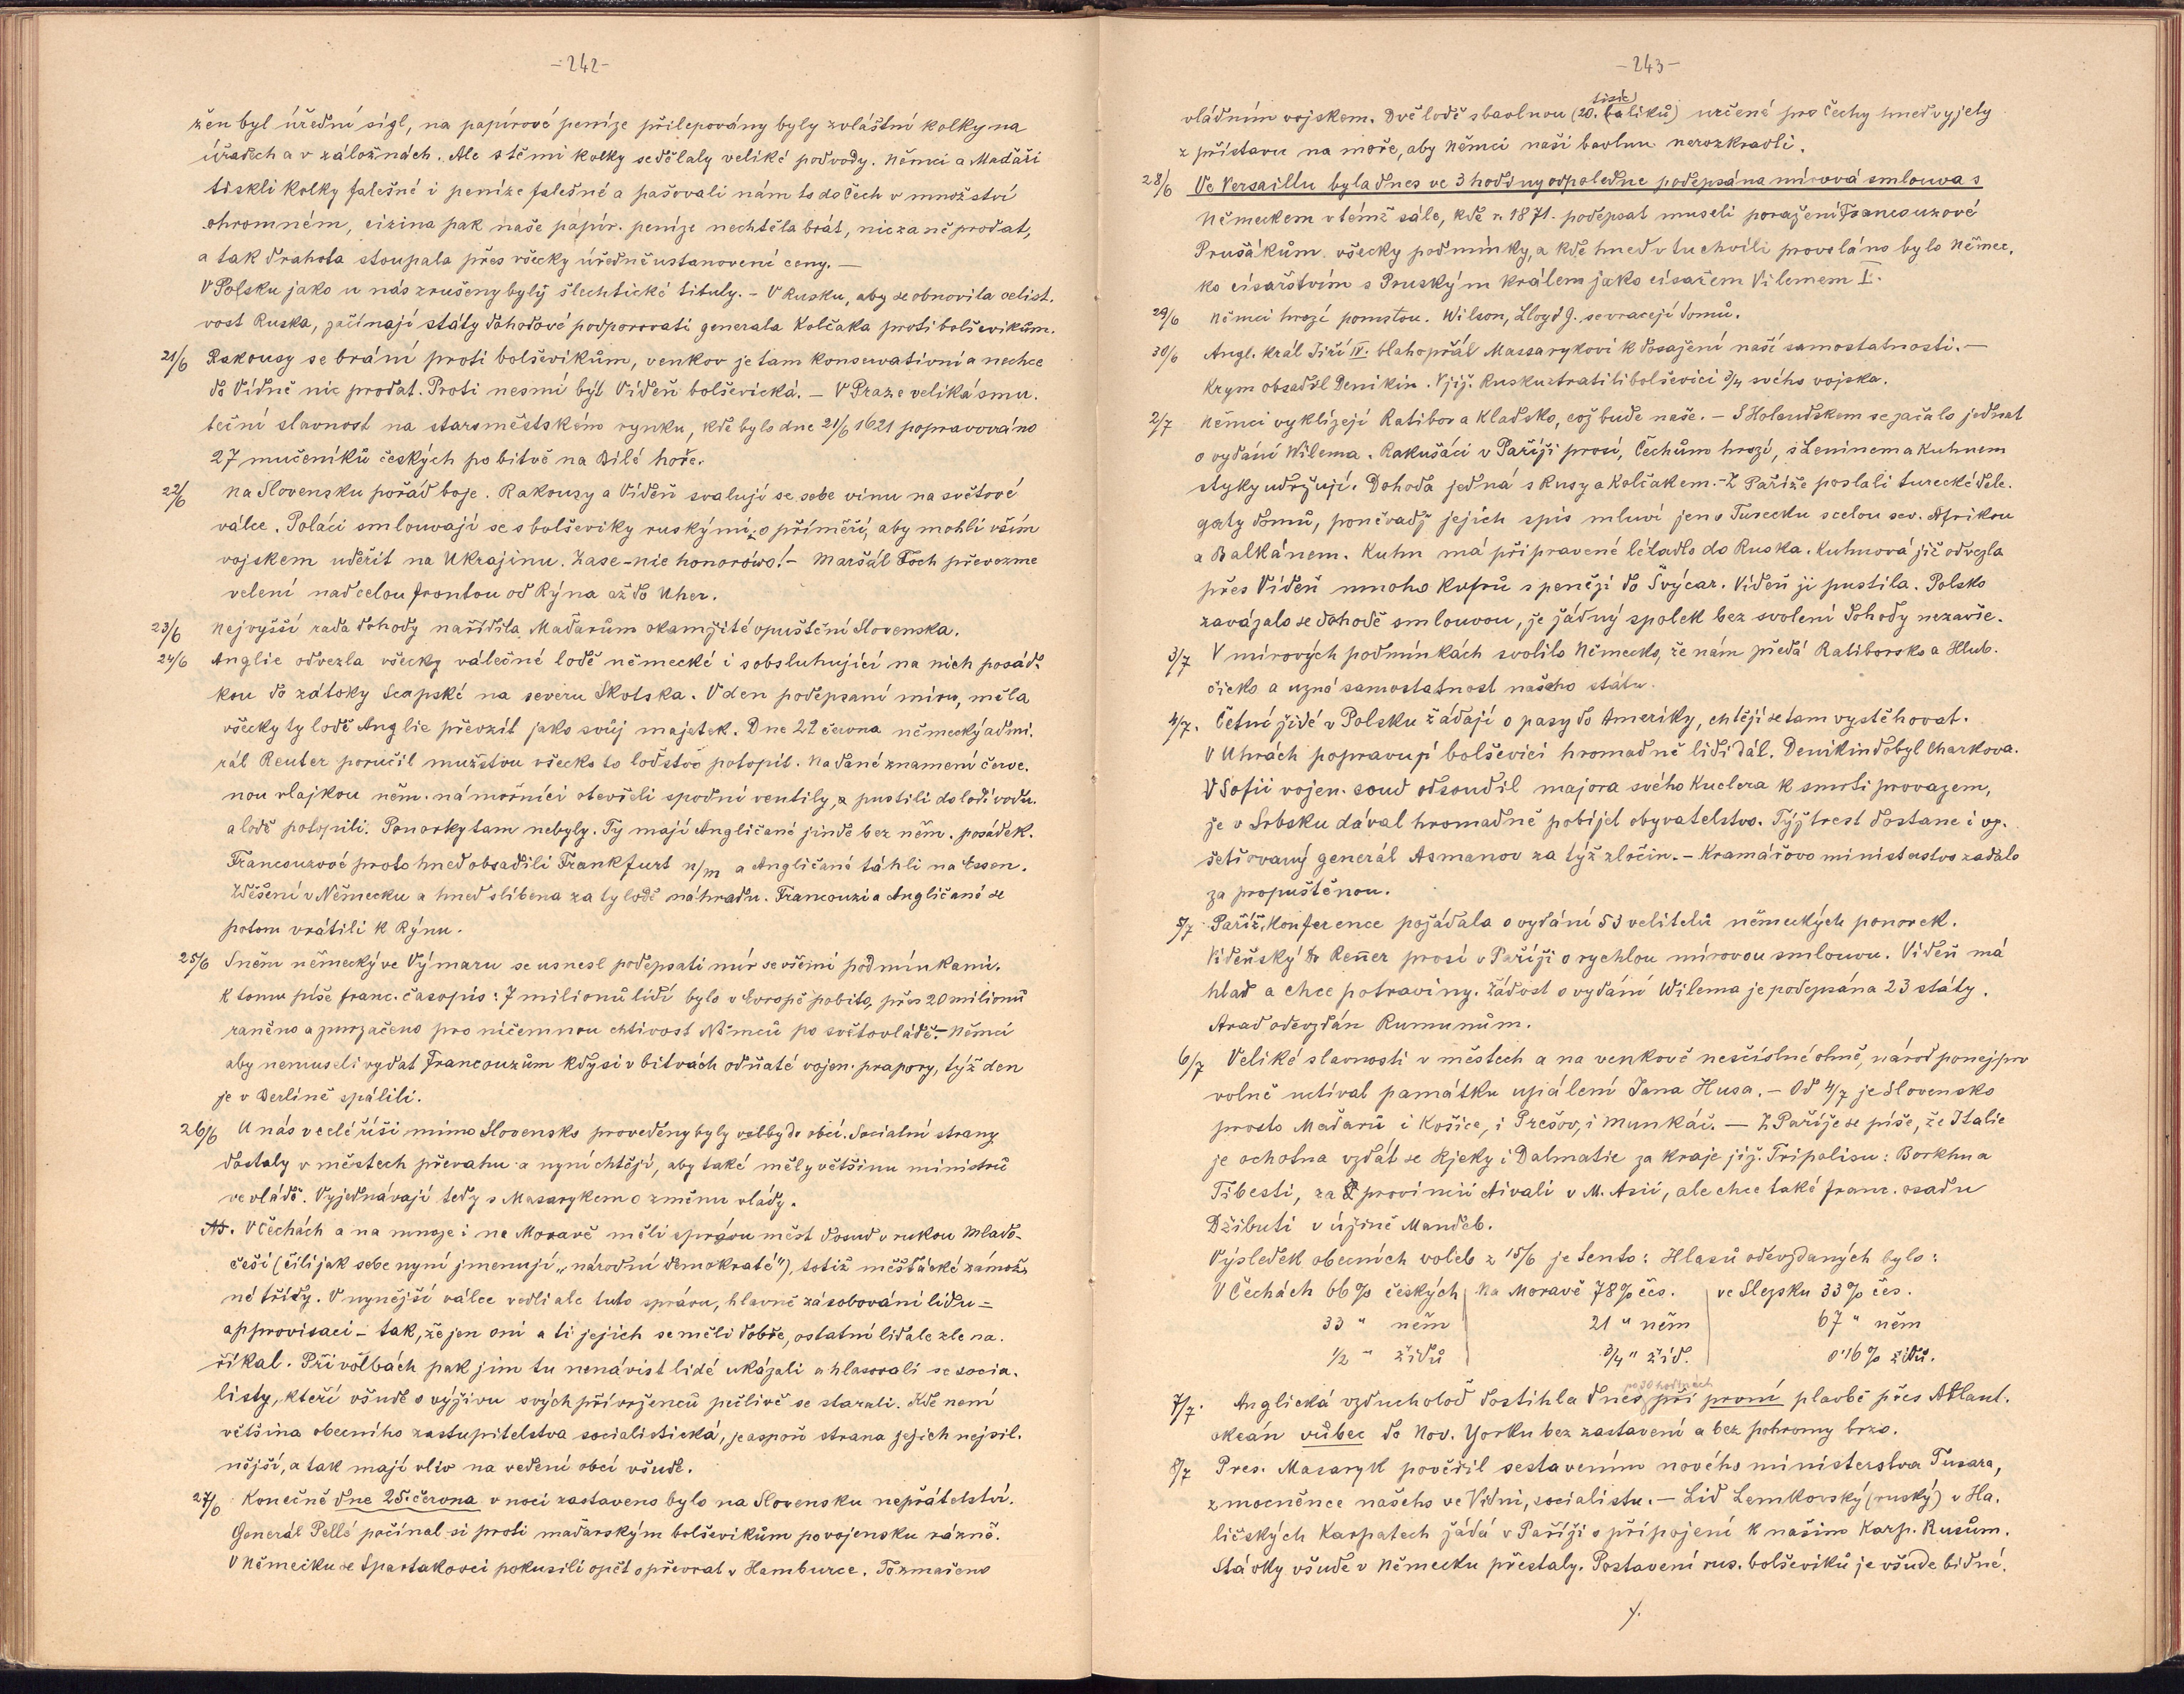 -242-
žen byl úřední sigl, na papírové peníze přilepovány byly zvláštní kolky na
úřadech a v záložnách. Ale s těmi kolky se dělaly veliké podvody. Němci a Maďaři
tiskli kolky falešné i peníze falešné a pašovali nám to do Čech v množství
ohromném, cizina pak naše papír. peníze nechtěla brát, nic za ně prodat,
a tak drahota stoupala přes všecky úředně ustanovení ceny. —
V Polsku jako u nás zrušeny byly šlechtické tituly. - V Rusku, aby se obnovila celist.
vost Ruska, začínají státy dohodové podporovati generala Kolčaka proti bolševikům.
21/6 Rakousy se brání proti bolševikům, venkov je tam konservativní a nechce
do Vídně nic prodat. Proti nesmí být Vídeň bolševická. - V Praze veliká smu.
teční slavnost na staroměstském rynku, kdě bylo dne 21/6 1621 popravováno
27 mučeníků českých po bitvě na Bílé hoře.
22/6 Na Slovensku pořád boje. Rakousy a Vídeň svalují se sebe vinu na světové
válce. Poláci smlouvají se s bolševiky ruskými o příměří, aby mohli vším
vojskem udeřit na Ukrajinu. Zase - nic honorówo! - Maršál Foch převezme
velení nad celou frontou od Rýna až do Uher.
23/6 Nejvyšší rada dohody nařídila Maďarům okamžité opuštění Slovenska.
24/6 Anglie odvezla všecky válečné lodě německé i s obsluhující na nich posád-
kou do zátoky Scapské na severu Skotska. V den podepsaní míru, měla
všecky ty lodě Anglie převzít jako svůj majetek. Dne 22 června německý admi.
rál Reuter poručil mužstvu všecko to loďstvo potopit. Na dané znamení červe.
nou vlajkou něm. námořníci otevřeli spodní ventily, a pustili do lodí vodu.
a lodě potopili. Ponorky tam nebyly. Ty mají Angličané jinde bez něm. posádek.
Francouzové proto hned obsadili Frankfurt n/m a Angličané táhli na Essen.
Zděšení v Německu a hned slíbena za ty lodě náhradu. Francouzi a Angličané se
potom vrátili k Rýnu.
25/6 Sněm německý ve Výmaru se usnesl podepsati mír se všemi podmínkami.
K tomu píše franc. časopis: 7 milionů lidí bylo v Evropě pobito, přes 20 milionů
raněno a zmrzačeno pro ničemnou chtivost Němců po světovládě. - Němci
aby nemuseli vydat Francouzům kdysi v bitvách odňaté vojen. prapory, týž den
je v Berlíně spálili.
26/6 U nás v celé říši mimo Slovensko provedeny byly volby do obcí. Socialní strany
dostaly v městech převahu a nyní chtějí, aby také měly většinu ministrů
ve vládě. Vyjednávají tedy s Masarykem o změnu vlády.
V Čechách a na mnoze i na Moravě měli správu měst dosud v rukou Mlado-
češi (čili jak sebe nyní jmenují „národní demokraté"), totiž měšťácké zámož-
né třídy. V nynější válce vedli ale tuto správu, hlavně zásobování lidu =
approvisaci - tak, že jen oni a ti jejich se měli dobře, ostatní lid ale zle na.
říkal. Při volbách pak jim tu nenávist lidé ukázali a hlasovali se socia.
listy, kteří všude o výživu svých přívrženců pečlivě se starali. Kde není
většina obecního zastupitelstva socialistická, je aspoň strana jejich nejsil.
nější, a tak mají vliv na vedení obcí všude.
27/6 Konečně dne 25. června v noci zastaveno bylo na Slovensku nepřátelství.
Generál Pellé počínal si proti maďarským bolševikům povojensku rázně.
V Německu se Spartakovci pokusili opět o převrat v Hamburce. To zmařeno
-243-
vládním vojskem. Dvě lodě s bavlnou (20. tisíc balíků) určené pro Čechy hned vyjely
z přístavu na moře, aby Němci naši bavlnu nerozkradli.
28/6 Ve Versaillu byla dnes ve 3 hodiny odpoledne podepsána mírová smlouva s
Německem v témž sále, kdě r. 1871. podepsat museli poražení Francouzové
Prušákům všecky podmínky, a kdě hned v tu chvíli provoláno bylo Němec.
ko císařstvím s Pruským králem jako císařem Vilemem I.
29/6 Němci hrozí pomstou. Wilson, Lloyd J. se vracejí domů.
30/6 Angl. král Jiří IV. blahopřál Massarykovi k dosažení naší samostatnosti. -
Krym obsadil Denikin. V již. Rusku ztratili bolševici 3/4 svého vojska.
2/7 Němci vyklízejí Ratibor a Kladsko, což bude naše. - S Holandskem se začalo jednat
o vydání Wilema. Rakušáci v Paříži prosí, Čechům hrozí, s Leninem a Kuhnem
styky udržují. Dohoda jedná s Rusy a Kolčakem. - Z Paříže poslali turecké dele.
gaty domů, poněvadž jejich spis mluví jen o Turecku s celou sev. Afrikou
a Balkánem. Kuhn má připravené létadlo do Ruska. Kuhnová již odvezla
přes Vídeň mnoho kufrů s penězi do Švýcar. Vídeň ji pustila. Polsko
zavázalo se dohodě smlouvou, že žádný spolek bez svolení dohody nezavře.
3/7 V mírových podmínkách svolilo Německo, že nám předá Ratiborsko a Hlub.
čicko a uzná samostatnost našeho státu.
4/7. Četní židé v Polsku žádají o pasy do Ameriky, chtějí se tam vystěhovat.
V Uhrách popravují bolševici hromadně lidi dál. Denikin dobyl Charkova.
V Sofii vojen. soud odsoudil majora svého Kuclera k smrti provazem,
že v Srbsku dával hromadně pobíjet obyvatelstvo. Týž trest dostane i vy.
šetřovaný generál Asmanov za týž zločin. - Kramářovo ministerstvo zadalo
za propuštěnou.
5/7 Paříž. konference požádala o vydání 53 velitelů německých ponorek.
Vídeňský Dr Renner prosí v Paříži o rychlou mírovou smlouvu. Vídeň má
hlad a chce potraviny. Žádost o vydání Wilema je podepsána 23 státy.
Arad odevzdán Rumunům.
6/7 Veliké slavnosti v městech a na venkově nesčíslné ohně, národ ponejprv
volně uctíval památku upálení Jana Husa. - Od 4/7 je Slovensko
prosto Maďarů i Košice, i Prešov, i Munkáč. — Z Paříže se píše, že Italie
je ochotna vzdát se Rjeky i Dalmatie za kraje již. Tripolisu: Borkhu a
Tibesti, za provincii Aivali v M. Asii, ale chce také franc. osadu
Džibuti v úžině Mandeb.
Výsledek obecních voleb z 15/6 je tento: Hlasů odevzdaných bylo:
V Čechách 66 % českých Na Moravě 78 % čes. ve Slezsku 33 % čes.
33 " něm 21 " něm 67 " něm
1/2 " židů 3/4 " žid. 0'16 % židů.
7/7. Anglická vzducholoď dostihla dnes po 30 hodinách při první plavbě přes Atlant.
okeán vůbec do Nov. Yorku bez zastavení a bez pohromy brzo.
8/7 Pres. Masaryk pověřil sestavením nového ministerstva Tusara,
zmocněnce našeho ve Vídni, socialistu. - Lid Lemkovský (ruský) v Ha.
ličských Karpatech žádá v Paříži o připojení k našim Karp. Rusům.
Stávky všude v Německu přestaly. Postavení rus. bolševiků je všude bídné.